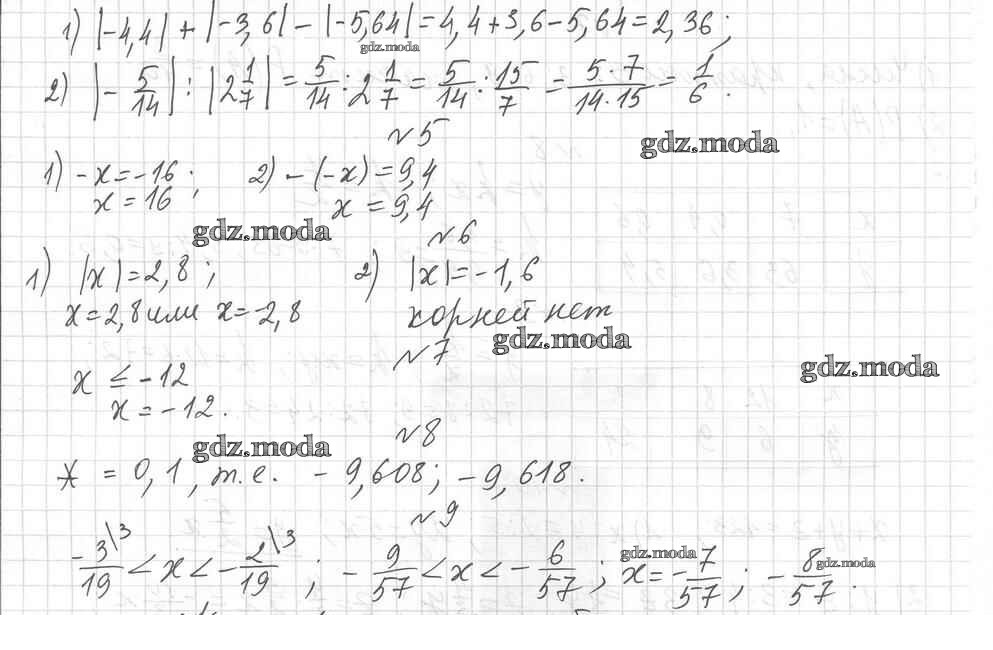 1) |-4,4| + |-3,6| - |-5,64| = 4,4 + 3,6 - 5,64 = 2,36;
gdz.moda
2) |-5/14| : |2 1/7| = 5/14 : 2 1/7 = 5/14 : 15/7 = 5·7/14·15 = 1/6.
№5
gdz.moda
1) -x = -16; 2) -(-x) = 9,4
x = 16 x = 9,4
gdz.moda
№6
1) |x| = 2,8; 2) |x| = -1,6
x = 2,8 или x = -2,8 корней нет
gdz.moda
№7
gdz.moda
x ≤ -12
x = -12.
№8
gdz.moda
* = 0,1, т.е. -9,608; -9,618.
№9
gdz.moda
-3\3/19 < x < -2\3/19; -9/57 < x < -6/57; x = -7/57; -8/57.
gdz.moda